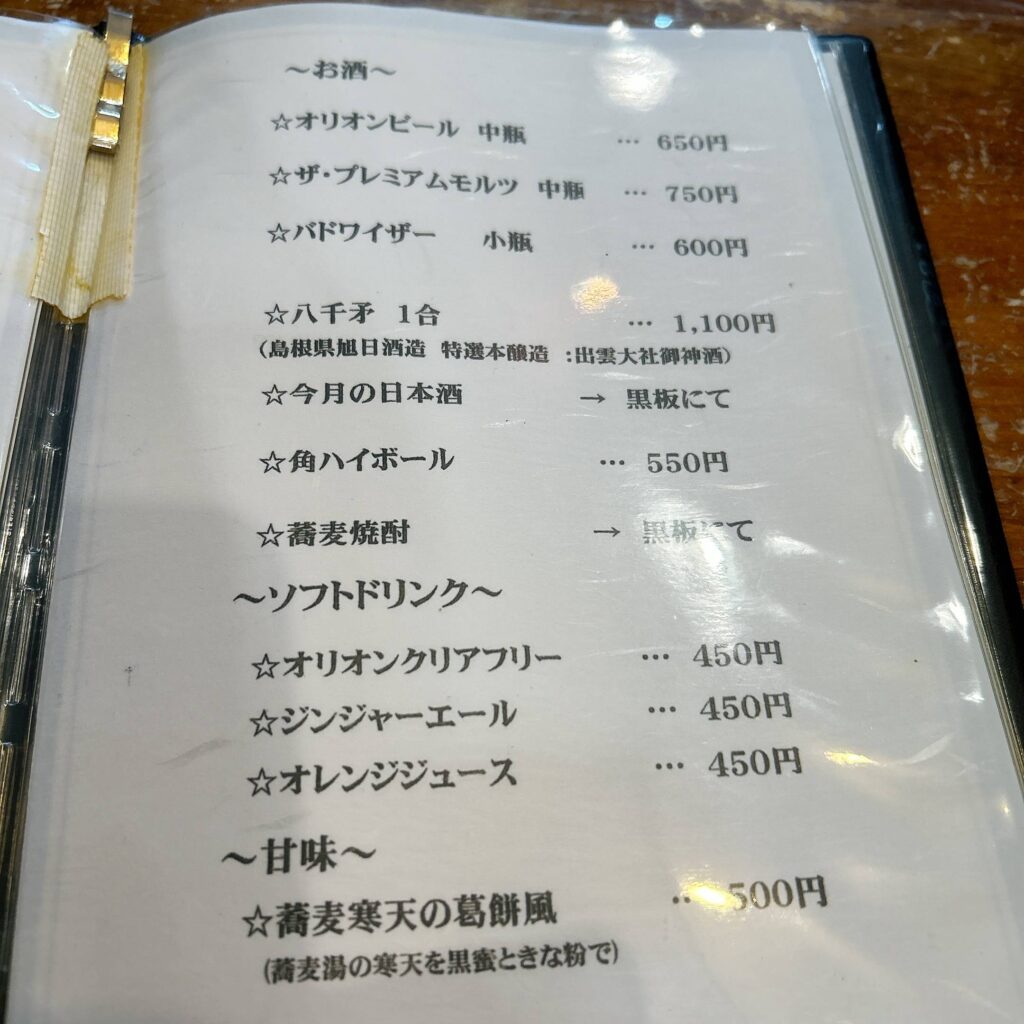 ～お酒～
☆オリオンビール 中瓶 … 650円
☆ザ・プレミアムモルツ 中瓶 … 750円
☆バドワイザー 小瓶 … 600円
☆八千矛 1合 … 1,100円
(島根県旭日酒造 特選本醸造 :出雲大社御神酒)
☆今月の日本酒 → 黒板にて
☆角ハイボール … 550円
☆蕎麦焼酎 → 黒板にて
～ソフトドリンク～
☆オリオンクリアフリー … 450円
☆ジンジャーエール … 450円
☆オレンジジュース … 450円
～甘味～
☆蕎麦寒天の葛餅風 … 500円
(蕎麦湯の寒天を黒蜜ときな粉で)